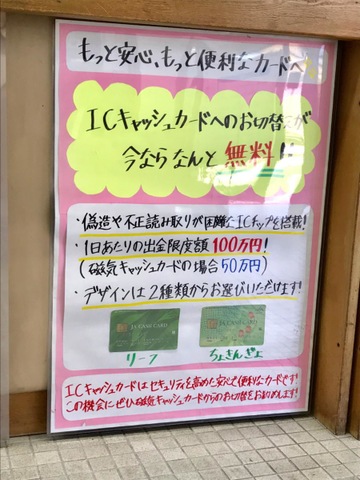 もっと安心、もっと便利なカードへ
ICキャッシュカードへのお切替えが
今ならなんと無料!!
・偽造や不正読み取りが困難なICチップを搭載!
・1日あたりの出金限度額100万円!
(磁気キャッシュカードの場合50万円)
・デザインは2種類からお選びいただけます!
JA CASH CARD
JA CASH CARD
リーフ
ちょきんぎょ
ICキャッシュカードはセキュリティを高めた安心で便利なカードです!
この機会にぜひ磁気キャッシュカードからのお切替をお勧めします!